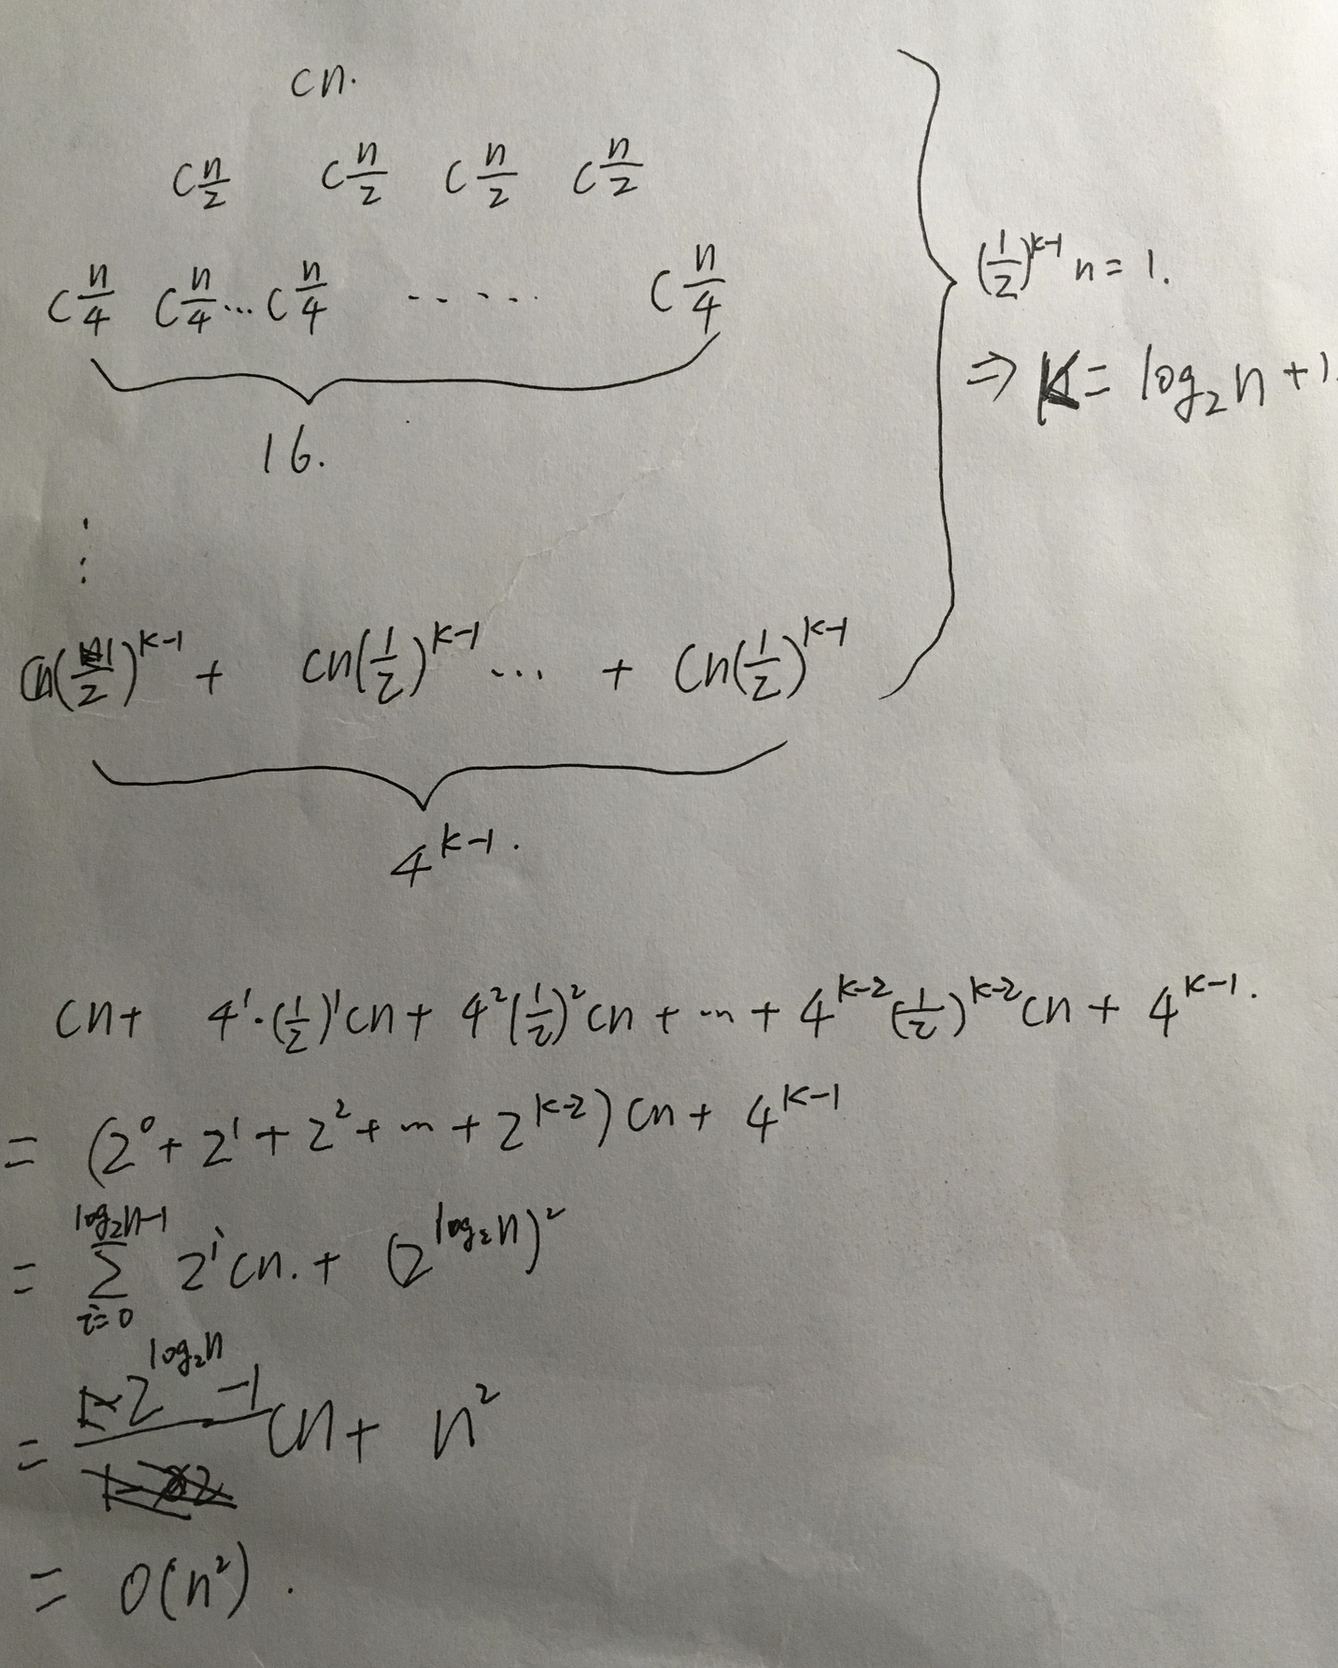 cn.
c n/2 c n/2 c n/2 c n/2
c n/4 c n/4 ... c n/4 ..... c n/4
(1/2)^{k-1} n = 1.
⇒ K = log₂n + 1.
16.
⋮
cn( /2)^{k-1} + cn(1/2)^{k-1} ... + cn(1/2)^{k-1}
4^{k-1}.
cn + 4¹·(1/2)¹cn + 4²(1/2)²cn + ... + 4^{k-2}(1/2)^{k-2}cn + 4^{k-1}.
= (2⁰ + 2¹ + 2² + ... + 2^{k-2}) cn + 4^{k-1}
= ∑_{i=0}^{log₂n-1} 2^i cn. + (2^{log₂n})²
= 2^{log₂n} - 1 cn + n²
= O(n²).